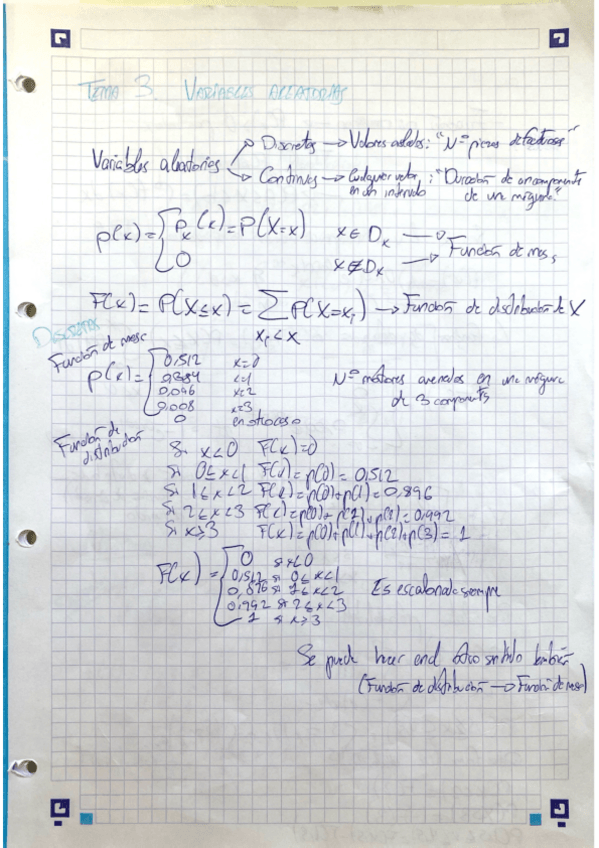 TEMA 3. VARIABLES ALEATORIAS
Variables aleatorias
Discretas → Valores aislados: "Nº piezas defectuosas"
Continuas → Cualquier valor en un intervalo: "Duración de un componente de una máquina"
p(x) = { p_x(x) = P(X=x) x ∈ D_x → Función de masa
0 x ∉ D_x →
F(x) = P(X≤x) = ∑ P(X=x_i) → Función de distribución de X
x_i < x
DISCRETAS
Función de masa
p(x) = { 0,512 x=0
0,384 x=1
0,096 x=2
0,008 x=3
0 en otro caso
Nº motores averiados en una máquina
de 3 components
Función de
distribución
Si x<0 F(x)=0
Si 0≤x<1 F(x)=p(0)=0,512
Si 1≤x<2 F(x)=p(0)+p(1)=0,896
Si 2≤x<3 F(x)=p(0)+p(2)+p(1)=0,992
Si x≥3 F(x)=p(0)+p(1)+p(2)+p(3)=1
F(x) = { 0 si x<0
0,512 si 0≤x<1
0,896 si 1≤x<2
0,992 si 2≤x<3
1 si x≥3
Es escalonada siempre
Se puede hacer en el otro sentido también
(Función de distribución → Función de masa)